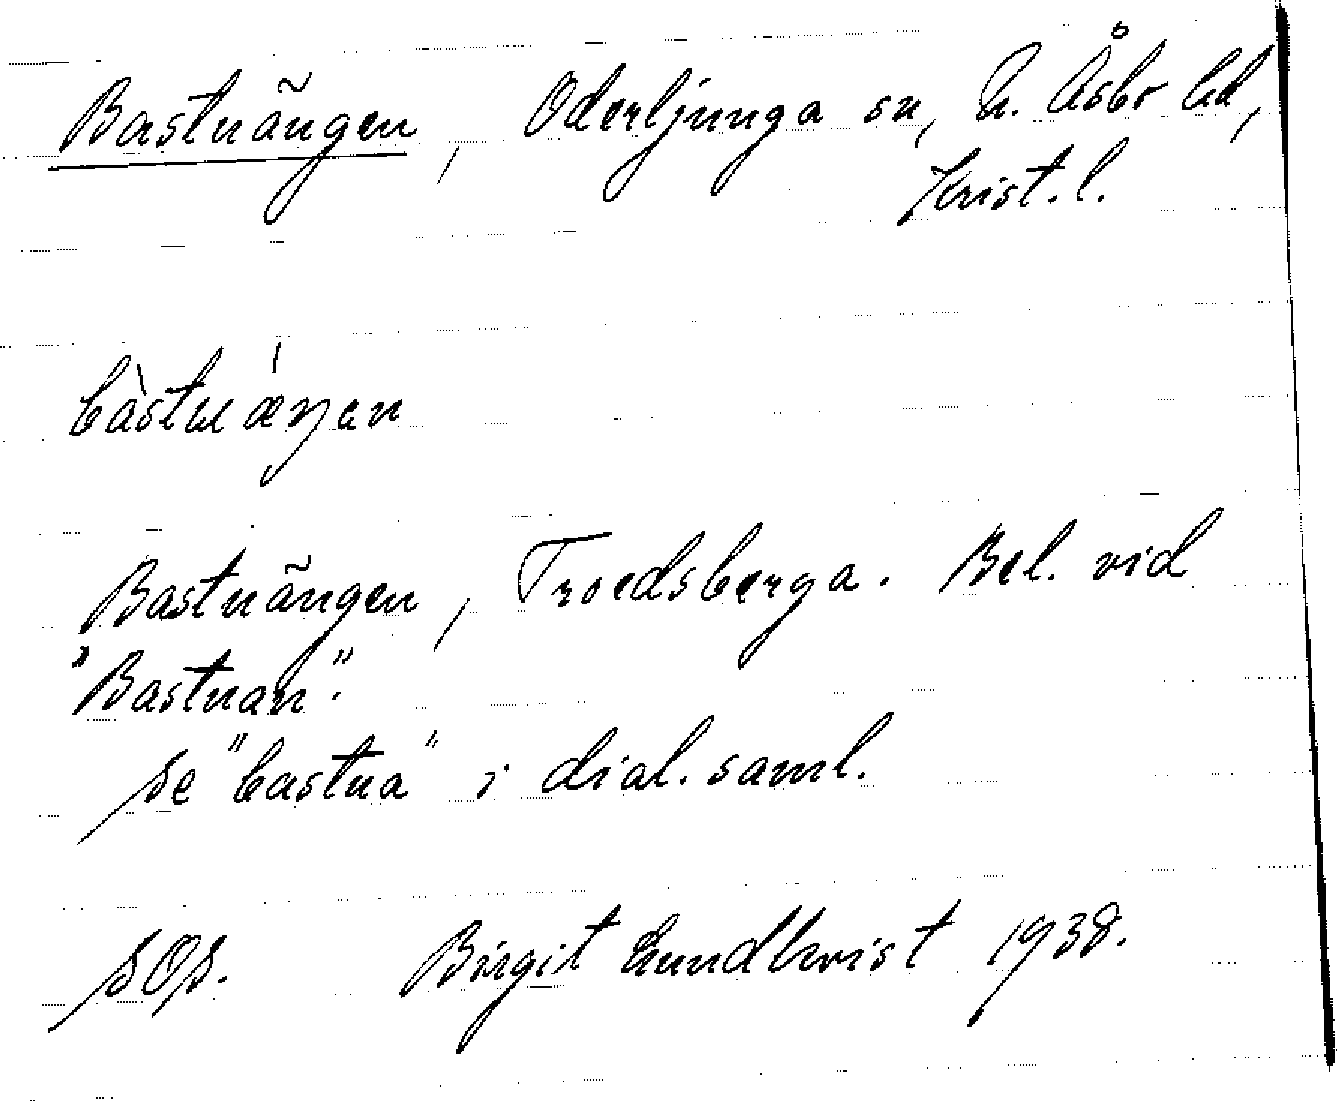 Bastuängen, Oderljunga sn, N. Åsbo hd,
Krist. l.
bàstuæŋen
Bastuängen, Troedsberga. Bel. vid
"Bastuan".
Se "bastua" i dial. saml.
SOS. Birgit Lundkvist 1938.